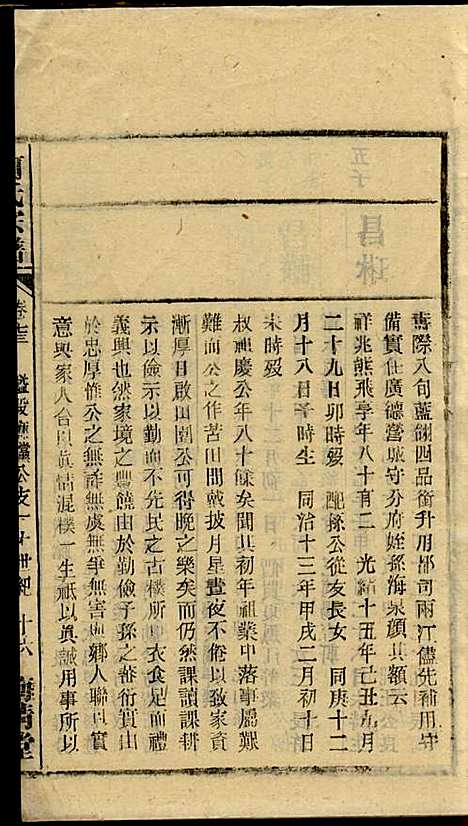 壽際八旬藍翎四品銜升用都司兩江儘先補用守
備實任廣德營城守分府姪孫海泉顔其額云
祥兆熊飛享年八十有二 光緒十五年己丑九月
二十九日卯時歿 配孫公從友長女 同庚十二
月十八日子時生 同治十三年甲戌二月初十日
未時歿
叔祖慶公年八十餘矣聞其初年祖業中落事屬艱
難而公之作苦田間戴披月星晝夜不倦以致家資
漸厚日啟田園公可得晚之樂矣而仍然課讀課耕
示以儉示以勤而不先民之古樸所專衣食足而禮
義興也然家境之豐饒由於勤儉子孫之蕃衍實由
於忠厚惟公之無詐無虞無爭無害與鄉人聯以實
意與家人合以真情渾樸一生祗以真誠用事所以
氏宗譜 卷 公支 世紀 十六 堂